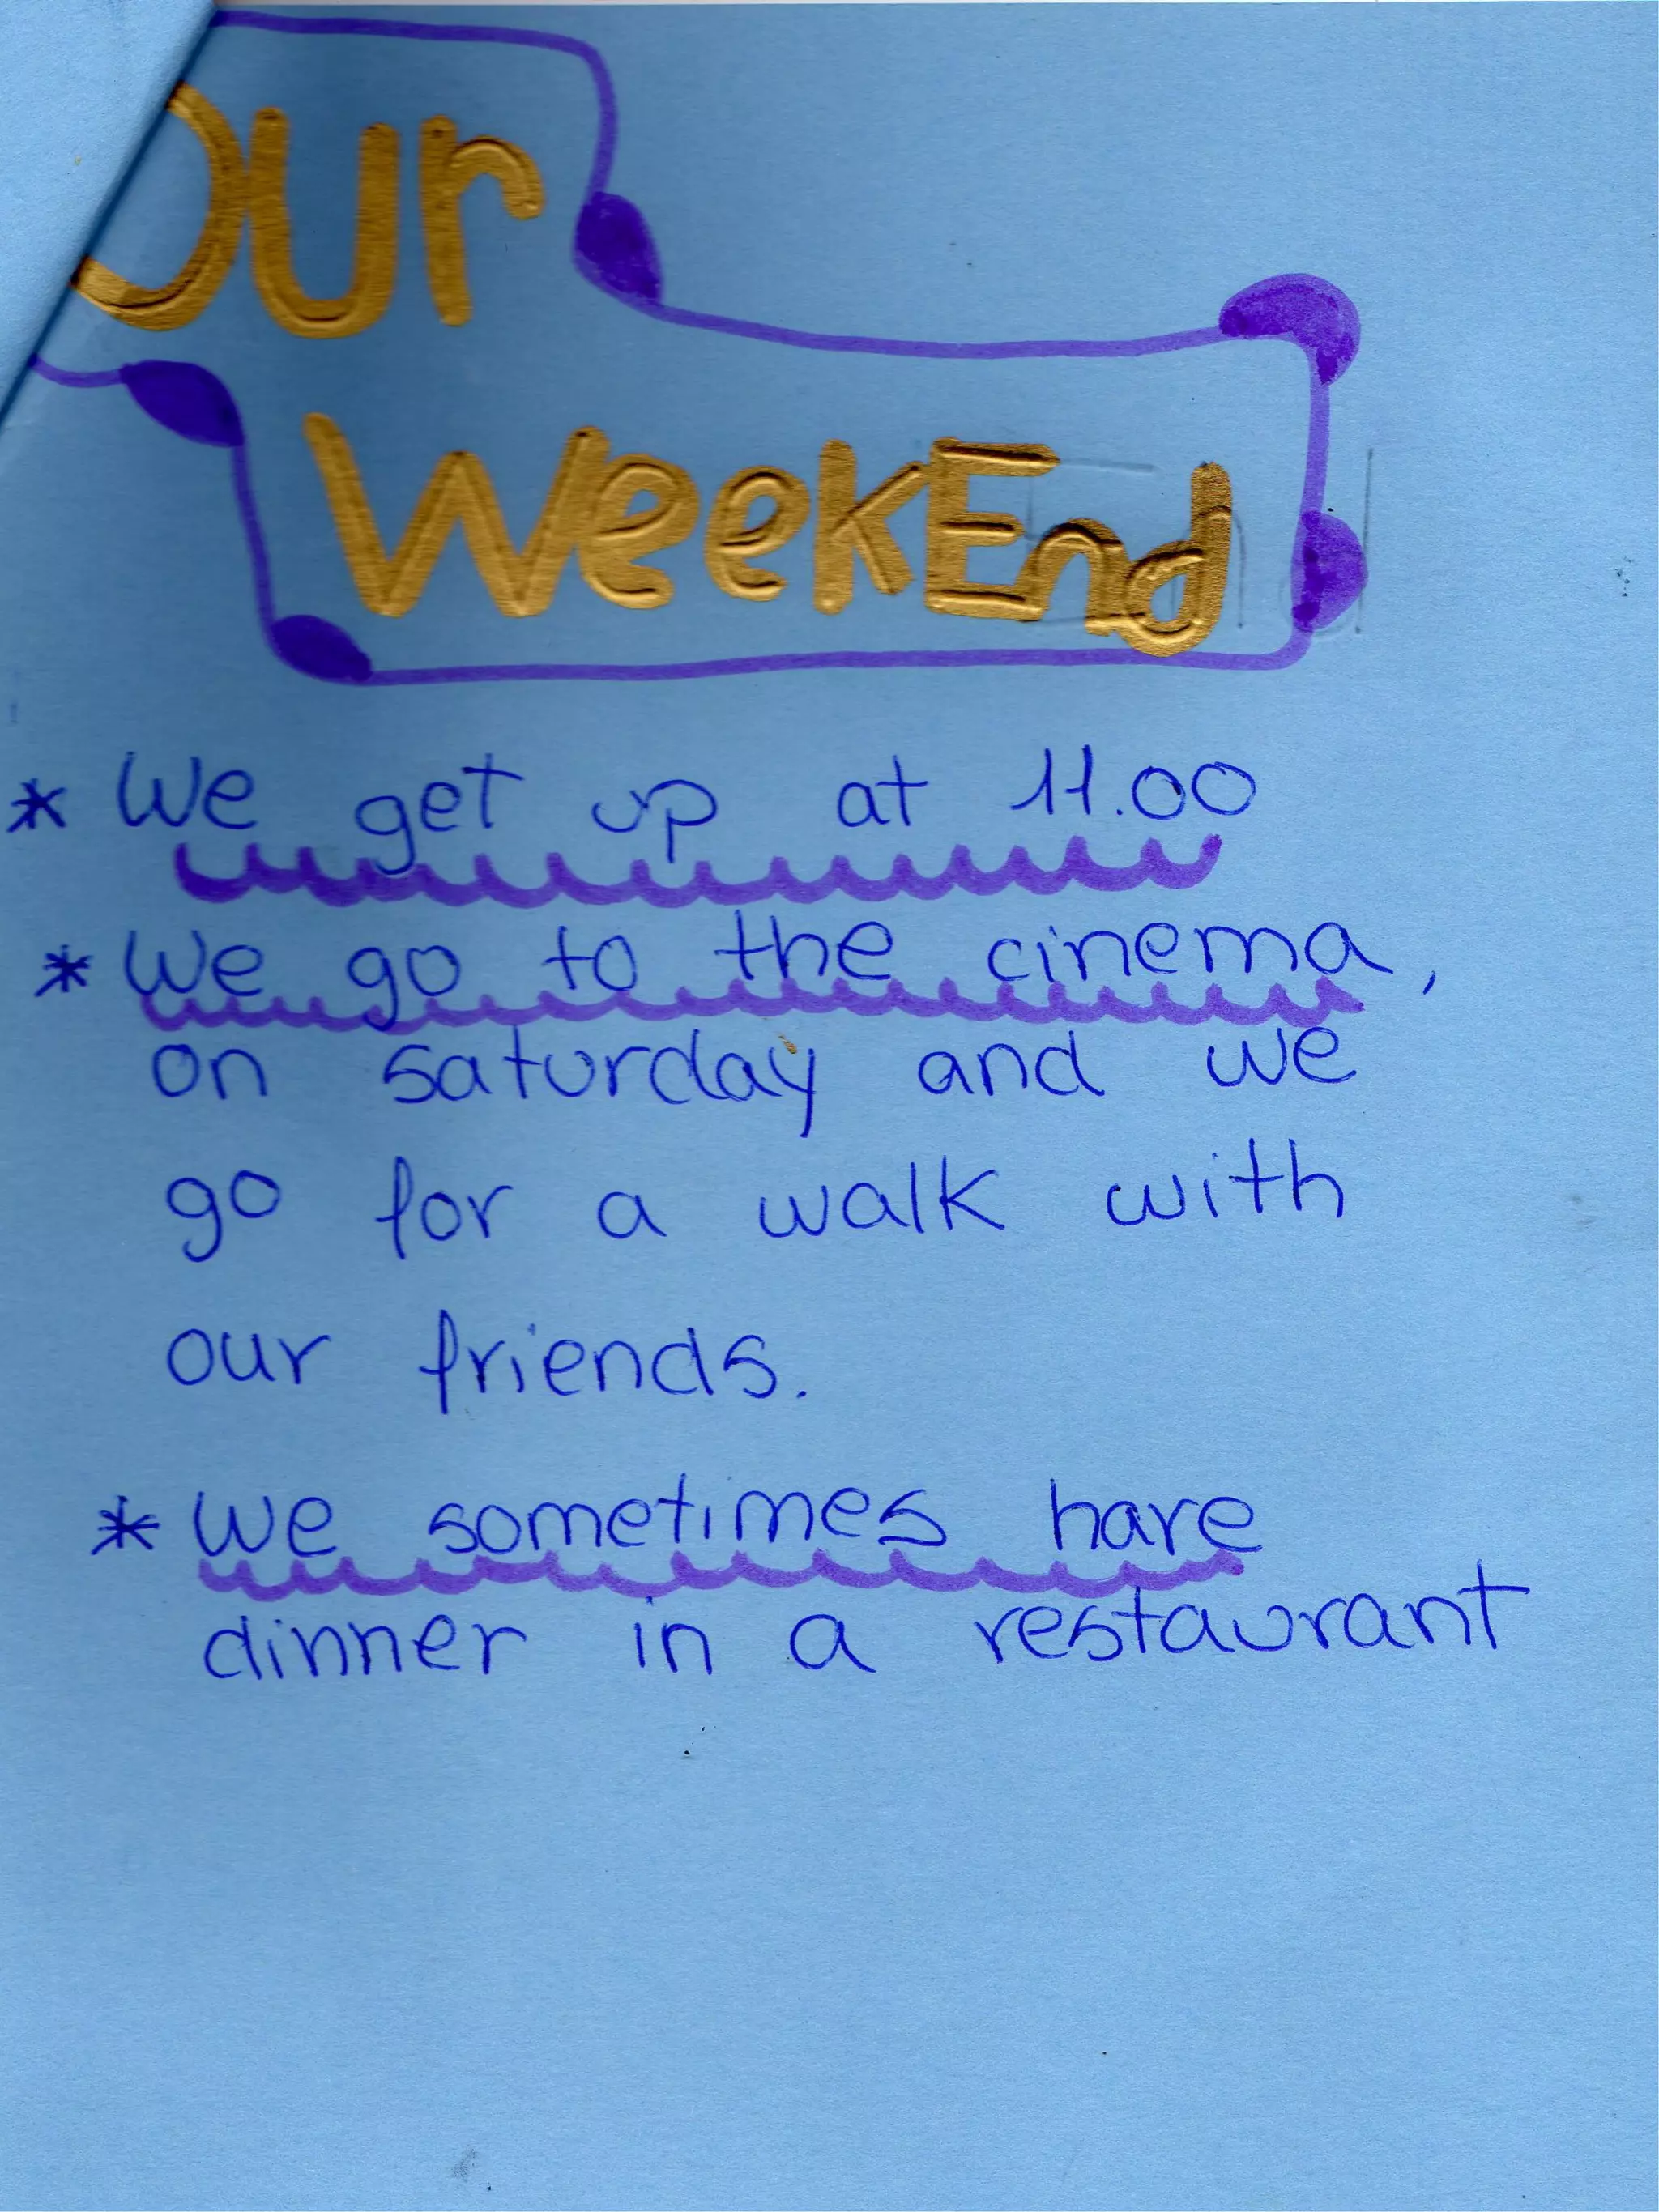 Our
WeekEnd
* We get up at 11.00
* We go to the cinema,
on saturday and we
go for a walk with
our friends.
* We sometimes have
dinner in a restaurant